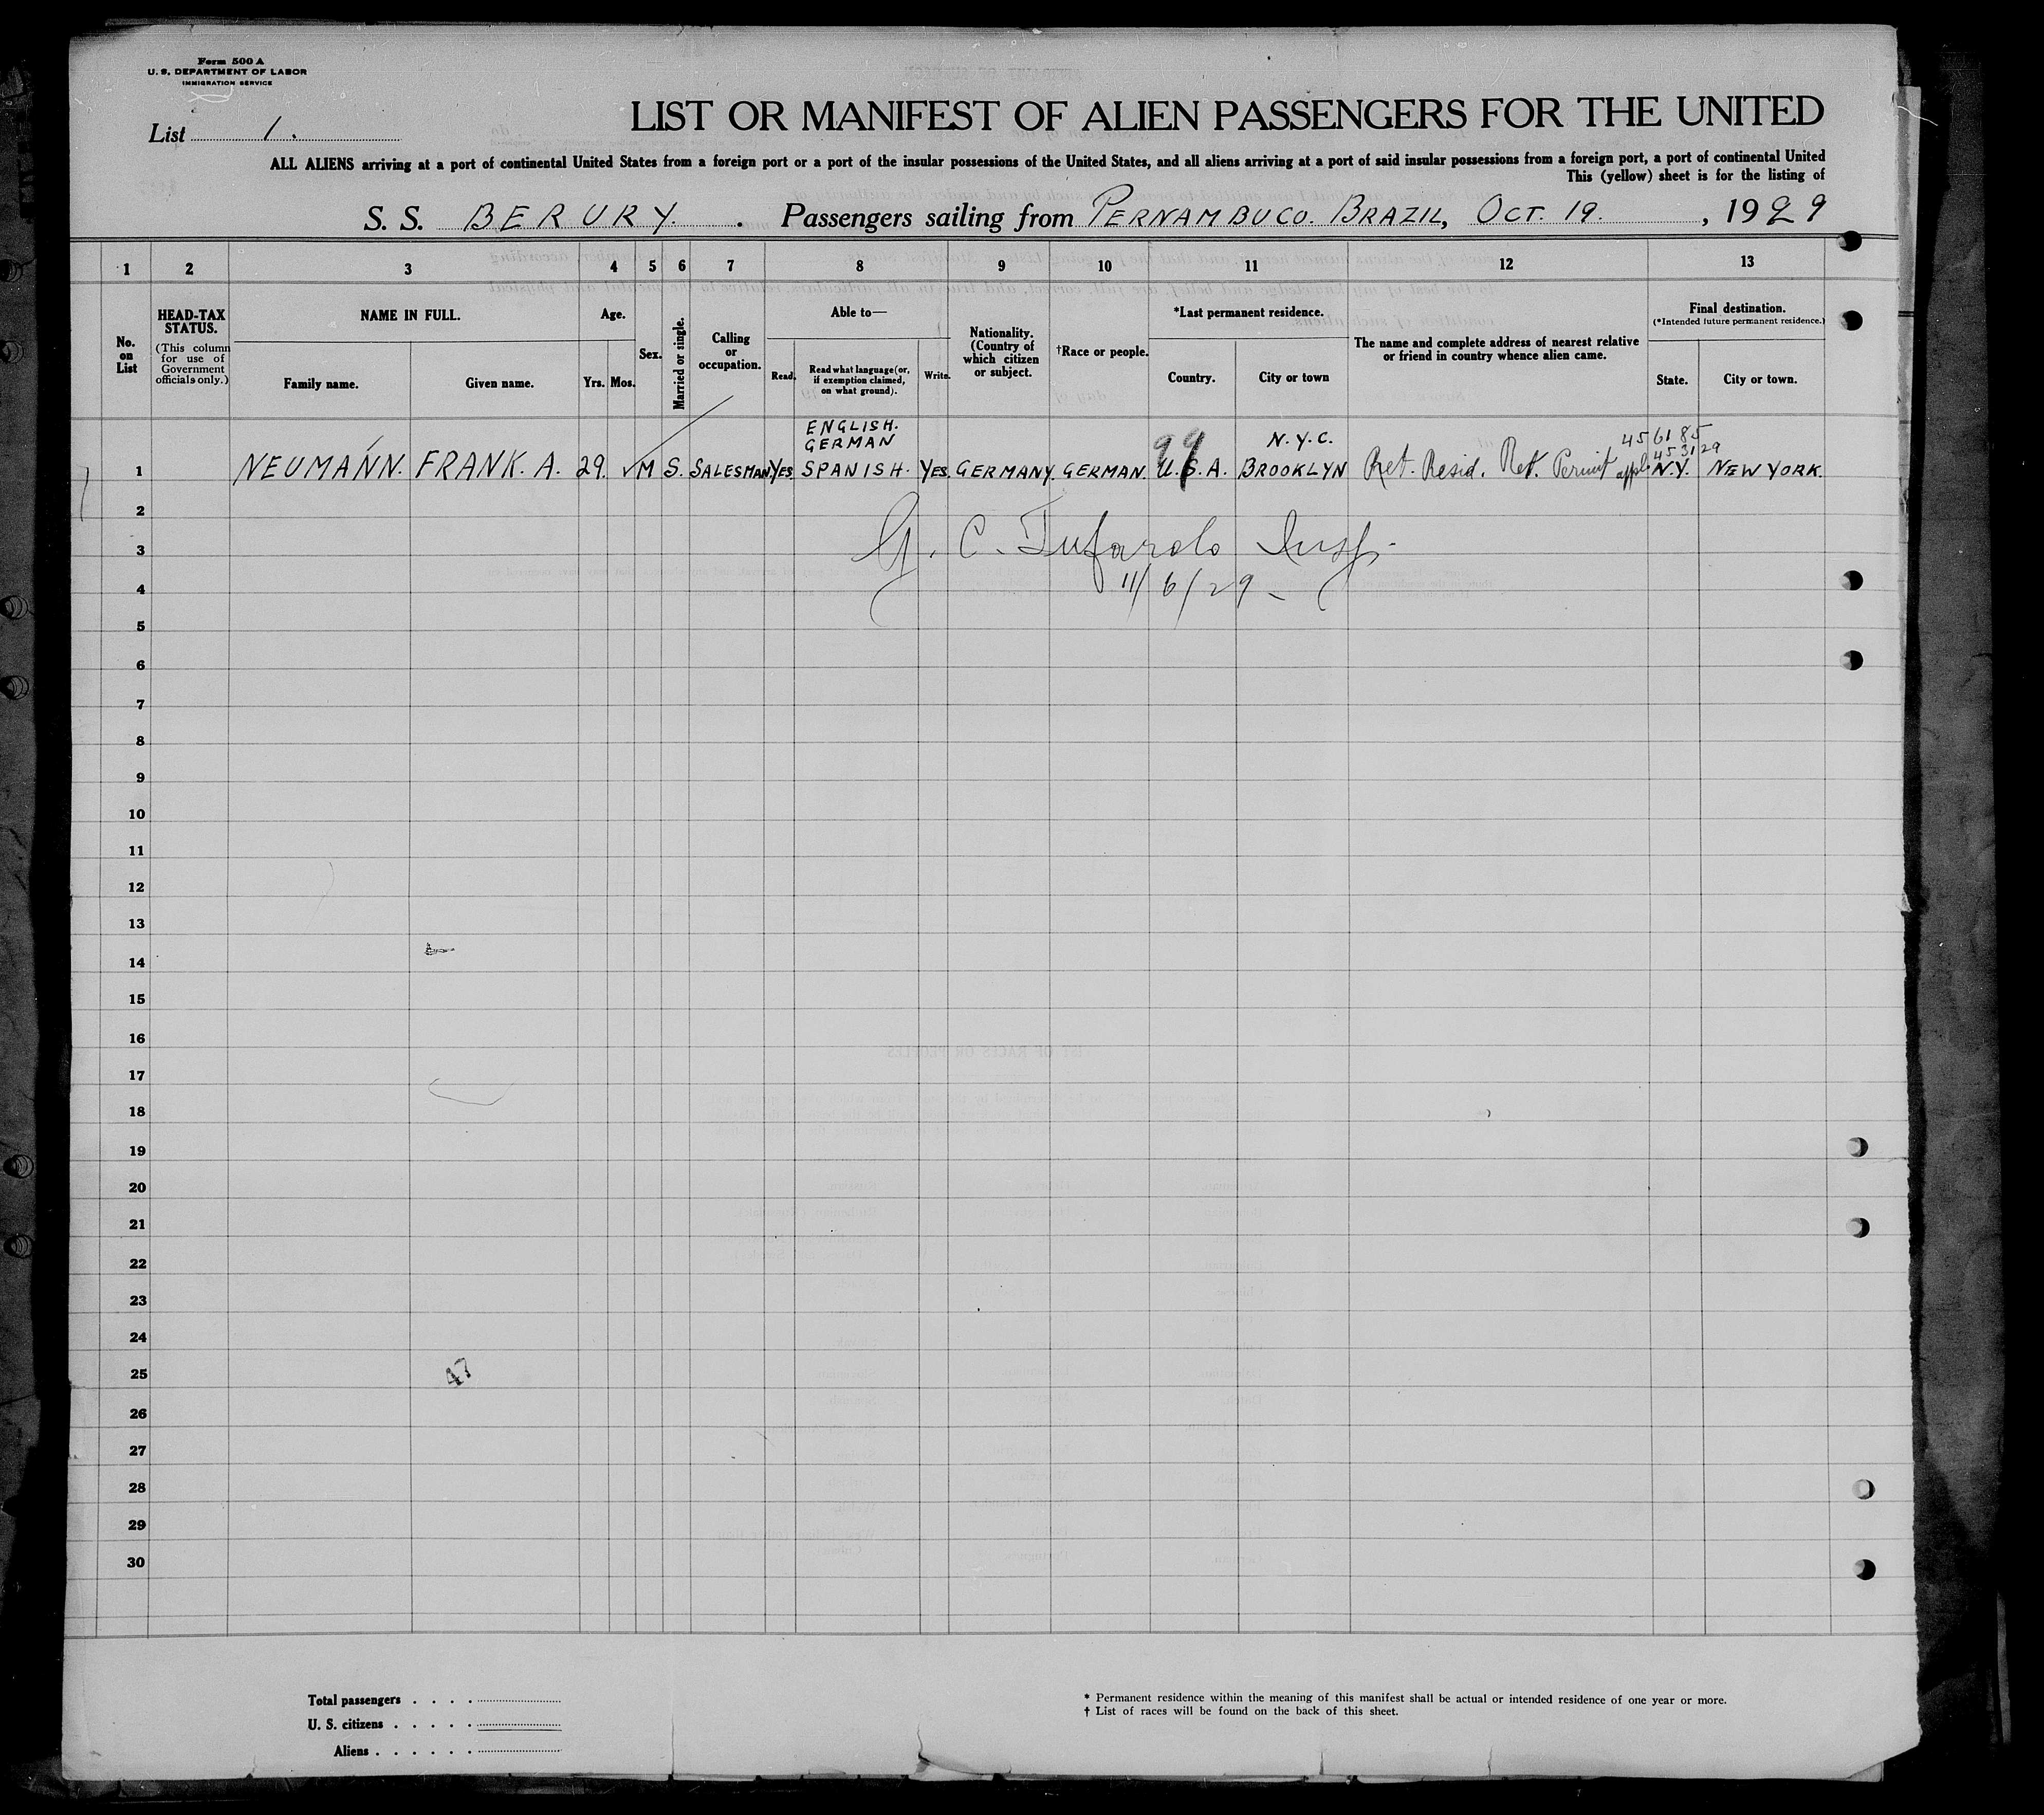 Form 500 A
U. S. DEPARTMENT OF LABOR
IMMIGRATION SERVICE
List 1.
LIST OR MANIFEST OF ALIEN PASSENGERS FOR THE UNITED
ALL ALIENS arriving at a port of continental United States from a foreign port or a port of the insular possessions of the United States, and all aliens arriving at a port of said insular possessions from a foreign port, a port of continental United
This (yellow) sheet is for the listing of
S. S. BERURY. Passengers sailing from PERNAMBUCO. BRAZIL, OCT. 19. , 1929
1 2 3 4 5 6 7 8 9 10 11 12 13
No. on List
HEAD-TAX STATUS.
(This column for use of Government officials only.)
NAME IN FULL.
Family name.
Given name.
Age.
Yrs. Mos.
Sex.
Married or single.
Calling or occupation.
Able to—
Read.
Read what language (or, if exemption claimed, on what ground).
Write.
Nationality. (Country of which citizen or subject.
†Race or people.
*Last permanent residence.
Country.
City or town
The name and complete address of nearest relative or friend in country whence alien came.
Final destination.
(*Intended future permanent residence.)
State.
City or town.
ENGLISH.
GERMAN
99
N.Y.C.
456185
453129
1 NEUMANN. FRANK. A. 29. M S. SALESMAN YES. SPANISH. YES. GERMANY. GERMAN. U.S.A. BROOKLYN Ret. Resid. Ret. Permit appl. N.Y. NEW YORK.
2
G. C. Tufarolo Insp.
3
11/6/29
4
5
6
7
8
9
10
11
12
13
14
15
16
17
18
19
20
21
22
23
24
25
47
26
27
28
29
30
Total passengers . . . .
U. S. citizens . . . . .
Aliens . . . . . .
* Permanent residence within the meaning of this manifest shall be actual or intended residence of one year or more.
† List of races will be found on the back of this sheet.